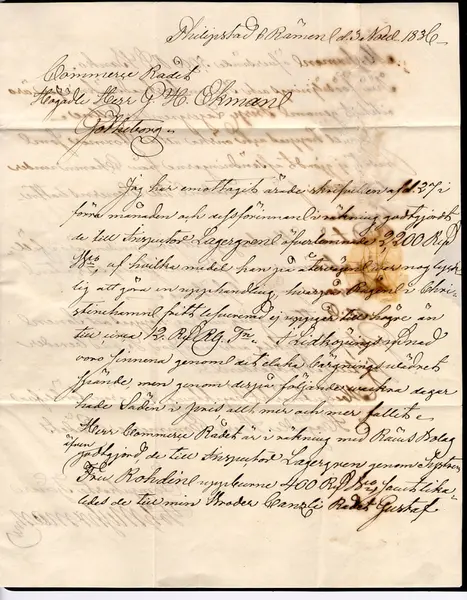 Philipstad & Rämen d. 3 Novb. 1836
Commerce Rådet
Högädle Herr G. H. Ekman
Götheborg
Jag har emottagit ärade skrifvelsen af d. 27 i
förra månaden och dessförinnan i räkning godtgjordt
de till Inspector Lagergren öfverlemnade 2,200 Rd
Bco, af hvilka medel han på återvägen var nog lyck-
lig att göra en upphandling, hvarpå Rågen i Chri-
stinehamn fritt levererad ej uppgår till högre än
till circa 12 Rd Rg Tn. I Lidköping
voro sinnena genom det elaka bärgningsvädret
men genom derpå följande vackra dagar
hade Säden i pris allt mer och mer fallit.
Herr Commerce Rådet är i räkning med Räms Bolag
äfven godtgjord de till Inspector Lagergren genom
Fru Rohdin uppburne 400 Rd Bco samt lika-
ledes de till min Broder Canzli Rådet Gustaf